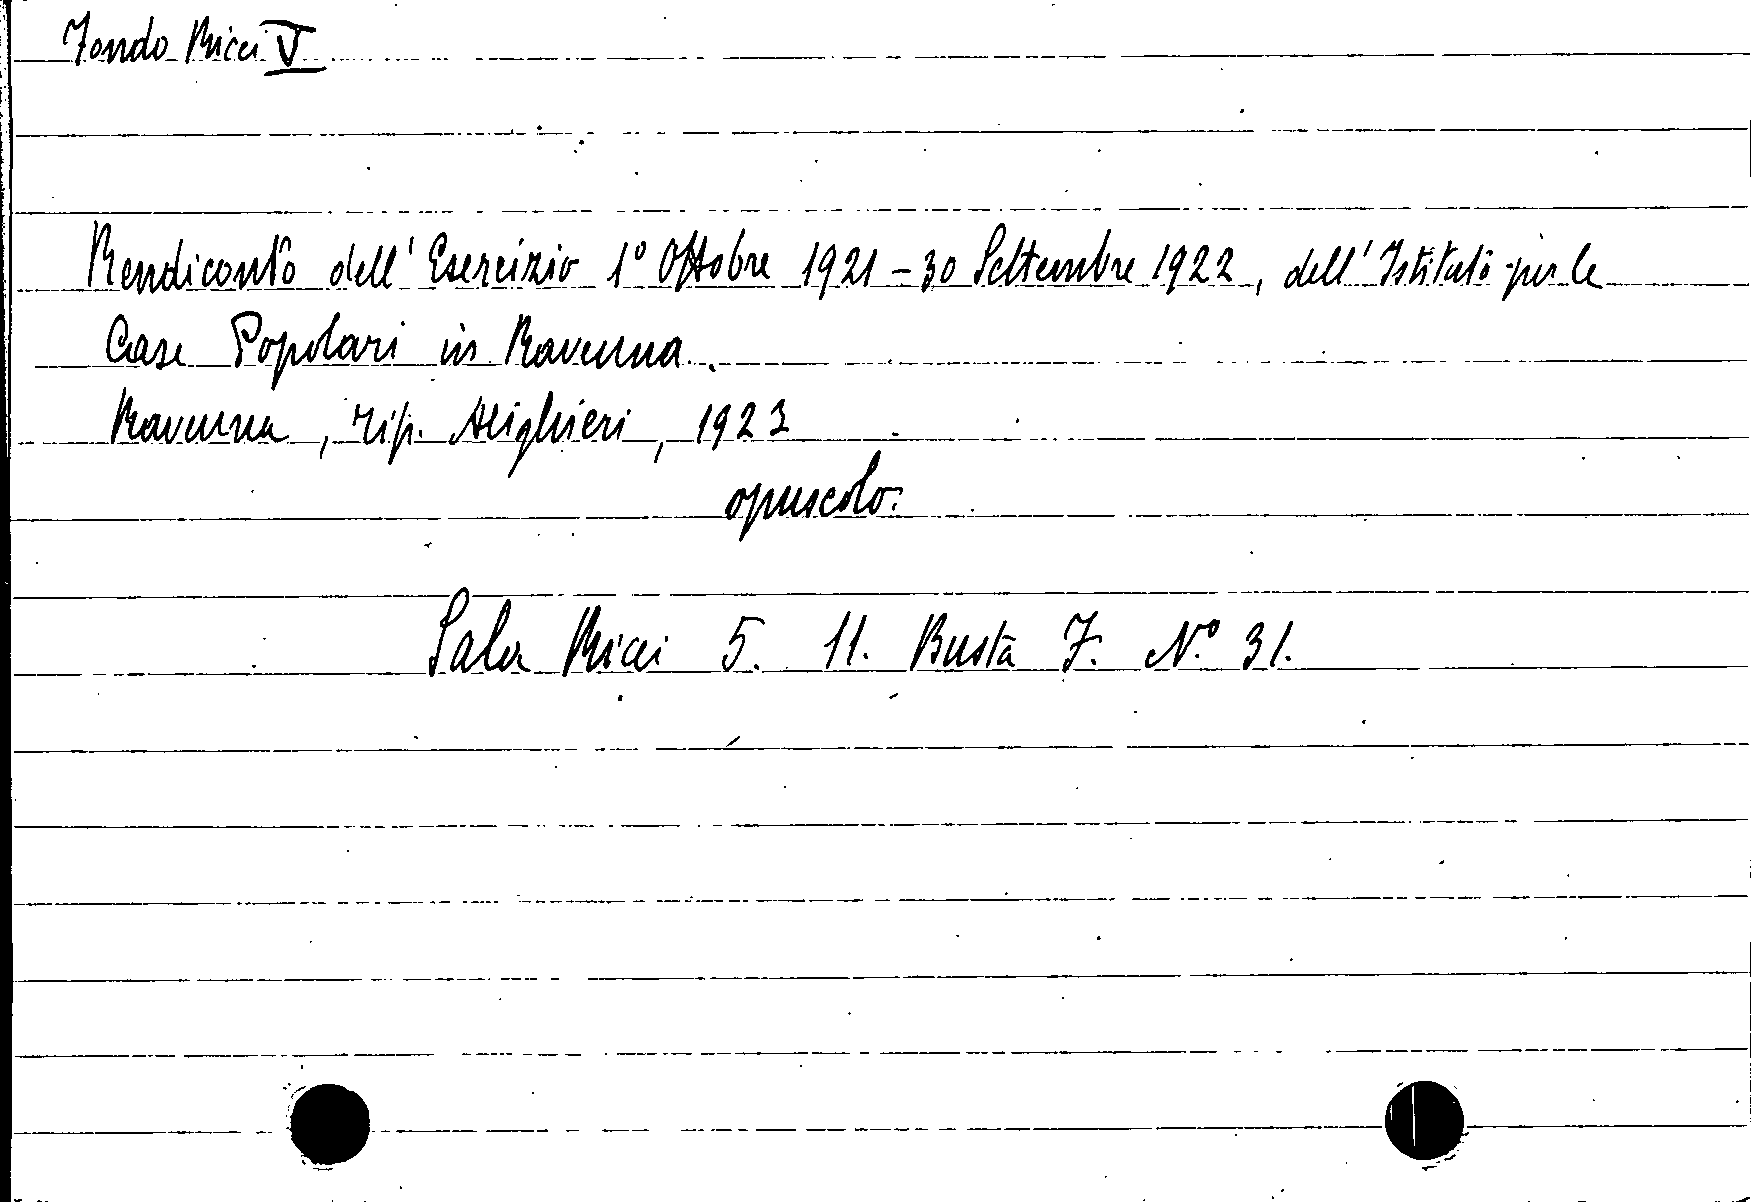 Fondo Ricci V
Rendiconto dell'Esercizio 1° Ottobre 1921 - 30 Settembre 1922, dell'Istituto per le
Case Popolari in Ravenna.
Ravenna, Tip. Alighieri, 1923
opuscolo.
Sala Ricci 5. 11. Busta 7. N.° 31.